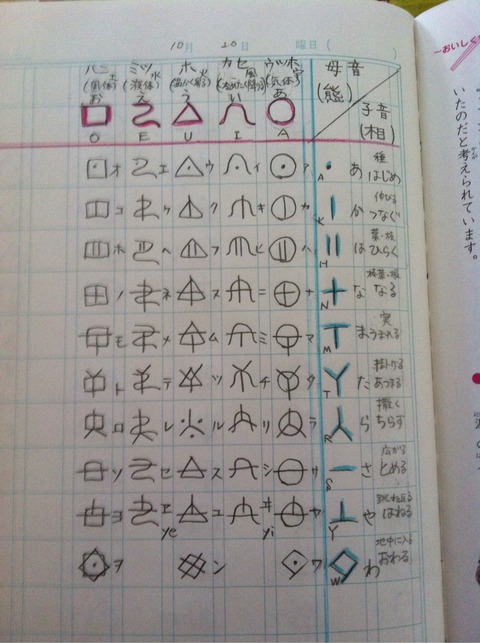 10月 20日 曜日 ( )
ハニ ミツ 水 ホ 火 カセ 風 ウツホ 空 母音
(固体) (液体) (気体) (態)
お え う い あ 子音
(相)
O E U I A
オ エ ウ イ ア A あ 種 はじめ
コ ケ ク キ カ K か 伸びる つなぐ
ホ ヘ フ ヒ ハ H は 葉・枝 ひらく
ノ ネ ヌ ニ ナ N な なる
モ メ ム ミ マ M ま 実 うまれる
ト テ ツ チ タ T た あつまる
ロ レ ル リ ラ R ら 撒く ちらす
ソ セ ス シ サ S さ 広がる とめる
ヨ ヱ ye ユ ヰ yi ヤ Y や はねる
ヲ ン ワ W わ 地中に入る おわる
〜おいしく
いたのだと考えられています。